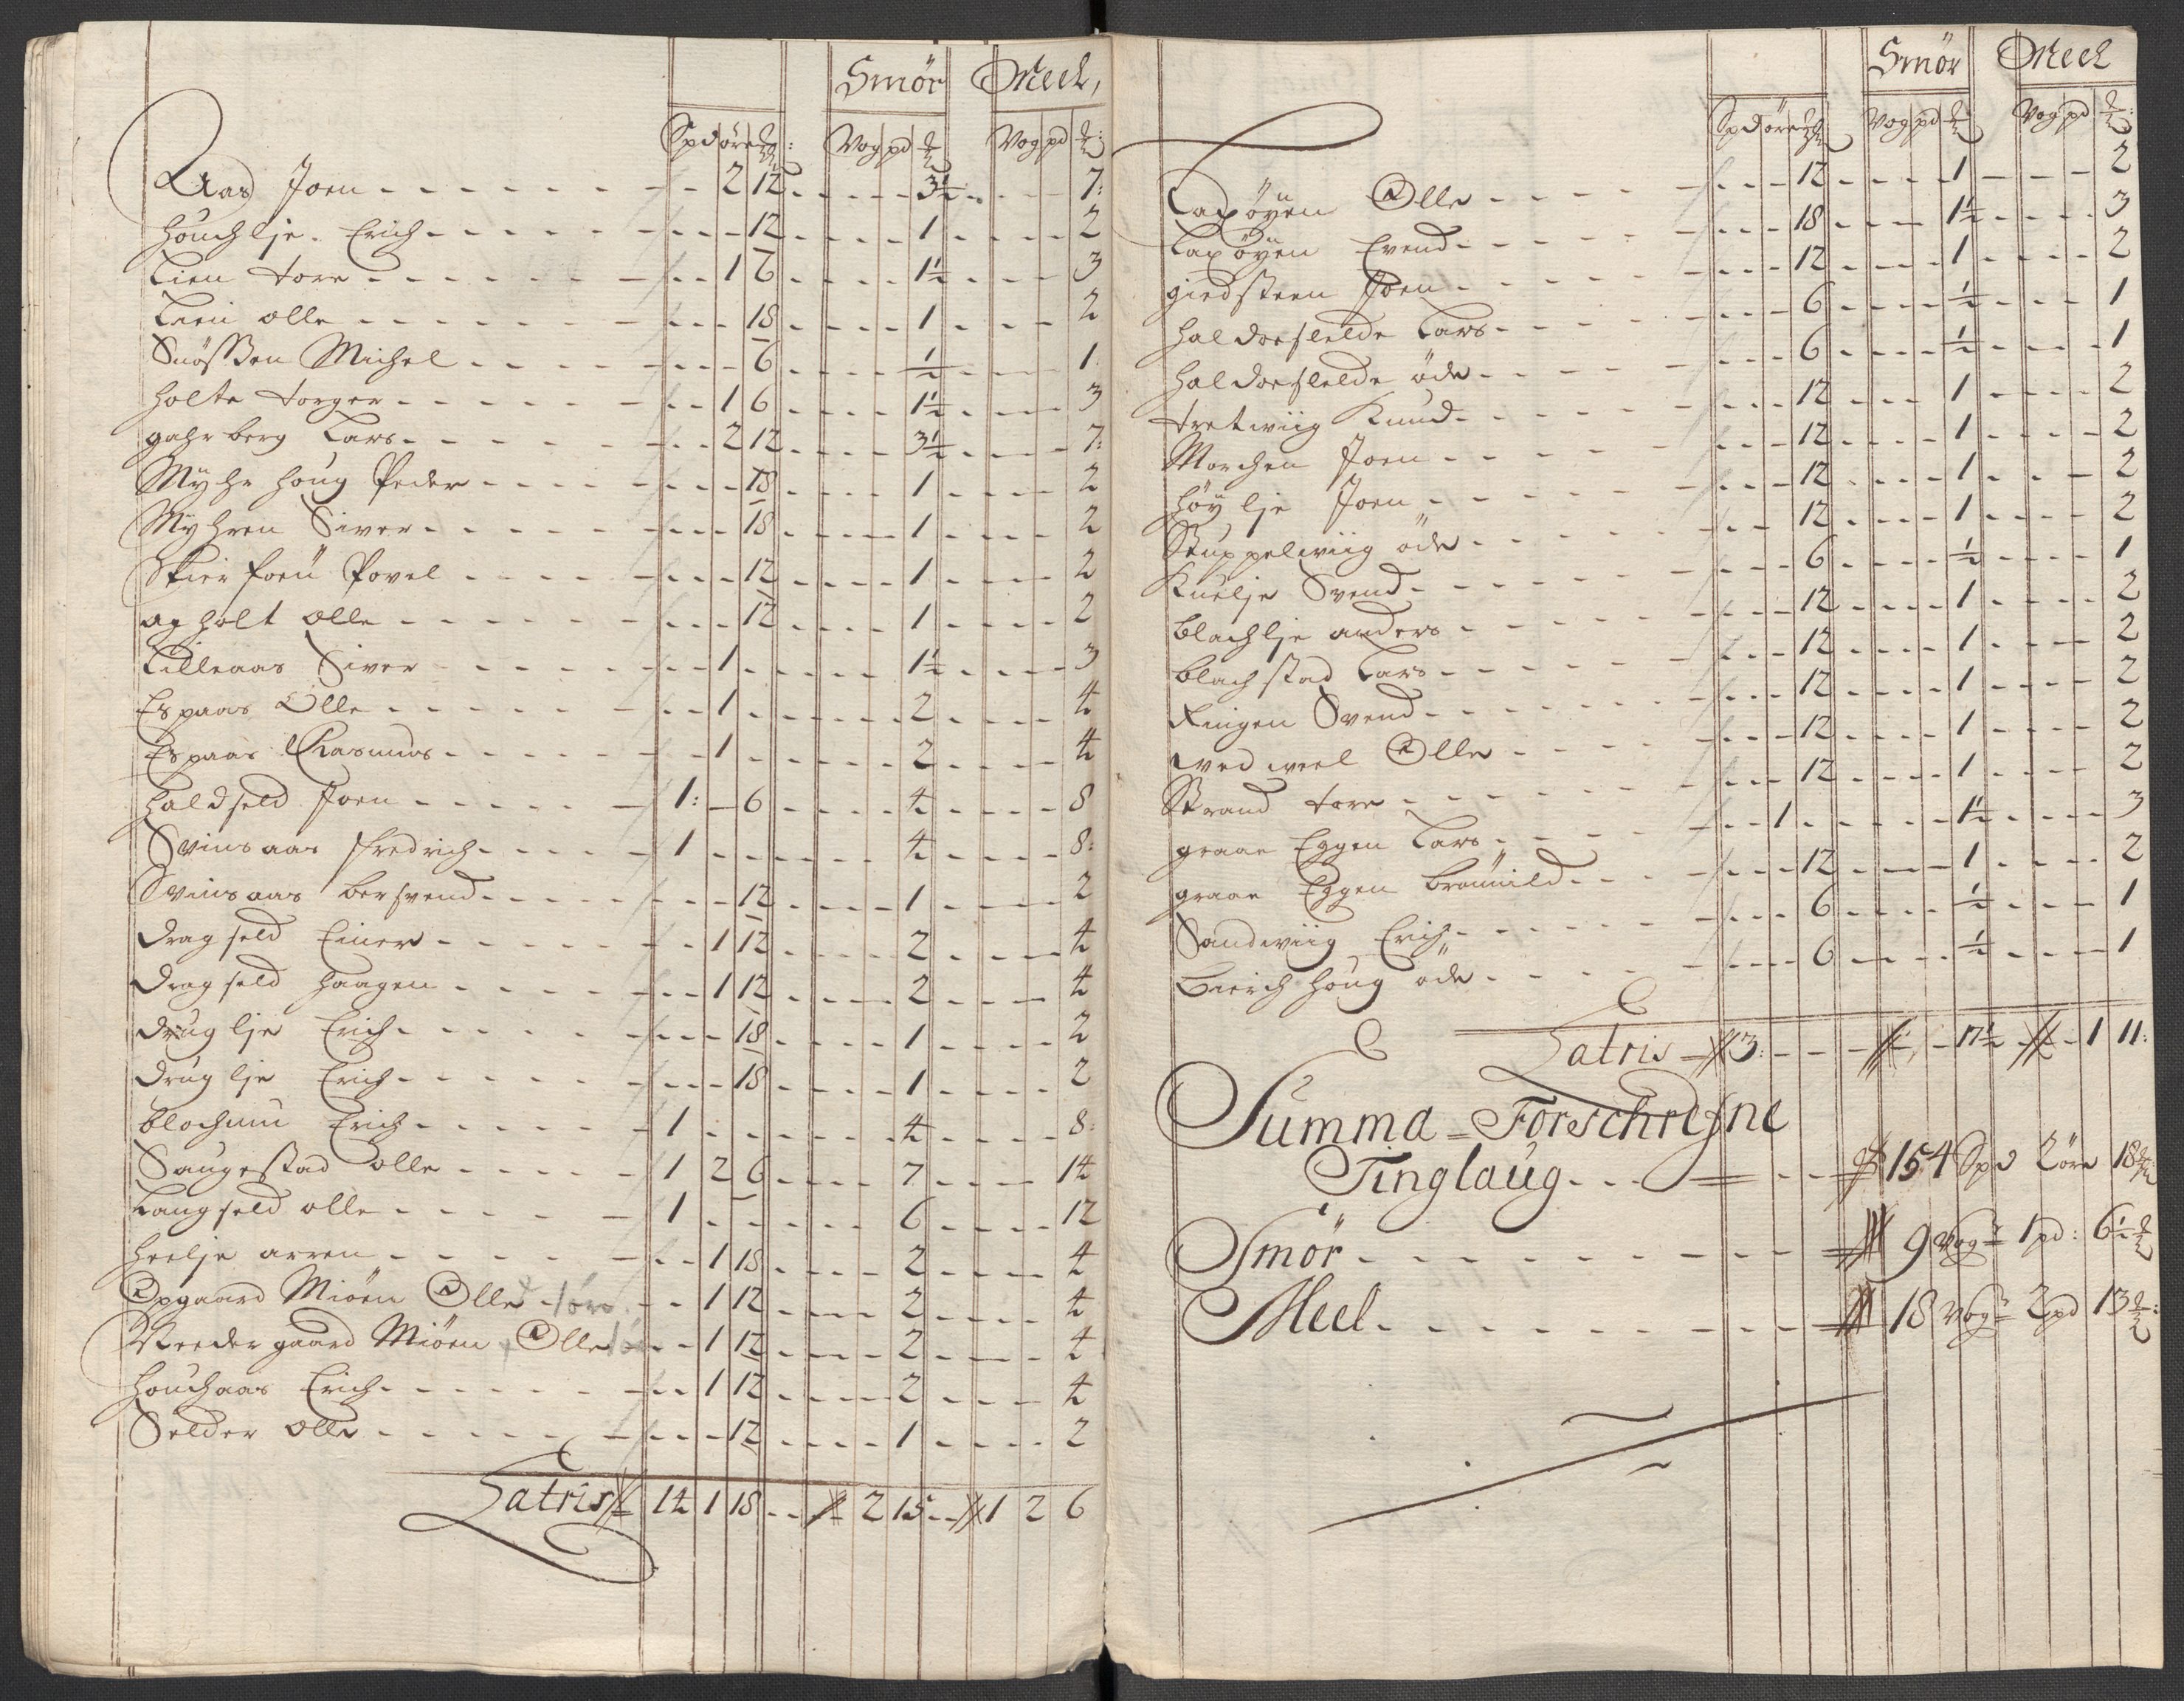 Smör Meel,
Spd öre mk: Vog pd # Vog pd #
Aas Joen - - - 2 12 - - - 3½ - - - 7:
houchlje Erich - - - 12 - - - 1 - - - 2
Lien tore - - - 1 6 - - - 1½ - - - 3
Lien olle - - - 18 - - - 1 - - - 2
Snössen Michel - - - 6 - - - ½ - - - 1
holte torger - - - 1 6 - - - 1½ - - - 3
gahrberg Lars - - - 2 12 - - - 3½ - - - 7:
Myhr houg Peder - - - 18 - - - 1 - - - 2
Myhren Siver - - - 18 - - - 1 - - - 2
Povel - - - 12 - - - 1 - - - 2
agholt olle - - - 12 - - - 1 - - - 2
Lilleaas Siver - - - 1 - - - 1½ - - - 3
Espaas Olle - - - 1 - - - 2 - - - 4
Espaas Rasmus - - - 1 - - - 2 - - - 4
haldseld Joen - - - 1: - 6 - - - 4 - - - 8
Svinsaas fredrich - - - 1 - - - 4 - - - 8:
Svinsaas bersvend - - - 12 - - - 1 - - - 2
dragseld Einer - - - 1 12 - - - 2 - - - 4
dragseld haagen - - - 1 12 - - - 2 - - - 4
drüglje Erich - - - 18 - - - 1 - - - 2
drüglje Erich - - - 18 - - - 1 - - - 2
blochum Erich - - - 1 - - - 4 - - - 8:
Saugestad olle - - - 1 2 6 - - - 7 - - - 14
Langseld olle - - - 1 - - - 6 - - - 12
heelje arren - - - 1 18 - - - 2 - - - 4
Opgaard Miöen Olle - - - 1 12 - - - 2 - - - 4
Needergaard Miöen Olle - - - 1 12 - - - 2 - - - 4
houchaas Erich - - - 1 12 - - - 2 - - - 4
Selder olle - - - 12 - - - 1 - - - 2
Latris 14 1 18 - - 2 15 - - 1 2 6
Smör Meel
Spd öre mk Vog pd # Vog pd #
Laxöyen Olle - - - 12 - - - 1 - - - 2
Laxöyen Evend - - - 18 - - - 1½ - - - 3
giedsteen Joen - - - 12 - - - 1 - - - 2
haldorslelde Lars - - - 6 - - - ½ - - - 1
haldorslelde öde - - - 6 - - - ½ - - - 1
tretwiig Knud - - - 12 - - - 1 - - - 2
Morchen Joen - - - 12 - - - 1 - - - 2
höylje Joen - - - 12 - - - 1 - - - 2
Stuppelwiig öde - - - 12 - - - 1 - - - 2
Kuelje Svend - - - 6 - - - ½ - - - 1
blachlje anders - - - 12 - - - 1 - - - 2
blachstad Lars - - - 12 - - - 1 - - - 2
Ringen Svend - - - 12 - - - 1 - - - 2
wedweel Olle - - - 12 - - - 1 - - - 2
Strand tore - - - 12 - - - 1 - - - 2
graae Eggen Lars - - - 1 - - - 1½ - - - 3
graae Eggen brönnild - - - 12 - - - 1 - - - 2
Sandwiig Erich - - - 6 - - - ½ - - - 1
Bierchhoug öde - - - 6 - - - ½ - - - 1
Latris - 3: - - - 17½ - 1 11:
Summa = Forschrefne
Tinglaug - - - 154 Spd 2 öre 18
Smör - - - 9 Vog 1 pd: 6½
Meel - - - 18 Vog 2 pd 13